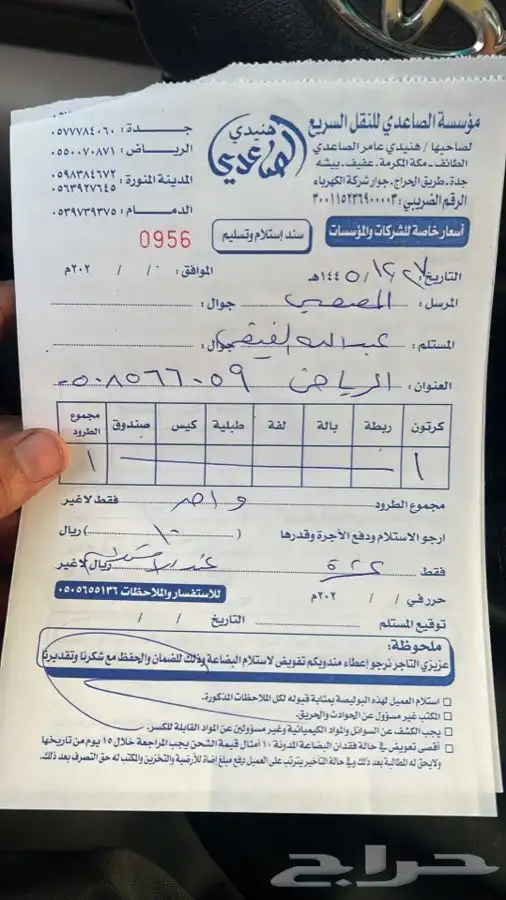 مؤسسة الصاعدي للنقل السريع
لصاحبها / هنيدي عامر الصاعدي
الطائف - مكة المكرمة. عفيف. بيشه
جدة. طريق الحراج. جوار شركة الكهرباء
الرقم الضريبي: ٣٠٠١١٥٢٣٦٩٠٠٠٠٣
هنيدي
الصاعدي
جـــدة: ٠٥٧٧٧٨٤٠٦٠
الرياض: ٠٥٥٠٠٧٠٨٧١
المدينة المنورة: ٠٥٩٨٣٨٤٦٧٢
٠٥٦٣٩٢٧٦٤٥
الدمام: ٠٥٣٩٧٣٩٣٧٥
أسعار خاصة للشركات والمؤسسات
سند إستلام وتسليم
0956
التاريخ: ٢٧ / ١٢ / ١٤٤٥هـ الموافق: / / ٢٠٢م
المرسل: جوال:
المستلم: عبدالله الفيفي جوال:
العنوان: الرياض ٠٥٠٨٥٦٦٠٥٩
كرتون ربطة بالة لفة طبلية كيس صندوق مجموع الطرود
١ ١
مجموع الطرود واحد فقط لاغير
ارجو الاستلام ودفع الأجرة وقدرها ( ) ريال
فقط ريال لاغير
حرر في / / ٢٠٢م للاستفسار والملاحظات ٠٥٠٥٦٥٥١٣٦
توقيع المستلم التاريخ / /
ملحوظة:
عزيزي التاجر نرجو إعطاء مندوبكم تفويض لاستلام البضاعة وذلك للضمان والحفظ مع شكرنا وتقديرنا
استلام العميل لهذه البوليصة بمثابة قبوله لكل الملاحظات المذكورة.
المكتب غير مسؤول عن الحوادث والحريق.
يجب الكشف عن السوائل والمواد الكيميائية وغير مسؤولين عن المواد القابلة للكسر.
أقصى تعويض في حالة فقدان البضاعة المدونة ١٠ أمثال قيمة الشحن يجب المراجعة خلال ١٥ يوم من تاريخها
ولا يحق له المطالبة بعد ذلك وفي حالة التأخير يترتب على العميل دفع مبلغ إضافة للأرضية والتخزين والمكتب له حق التصرف بعد ذلك.
حراج